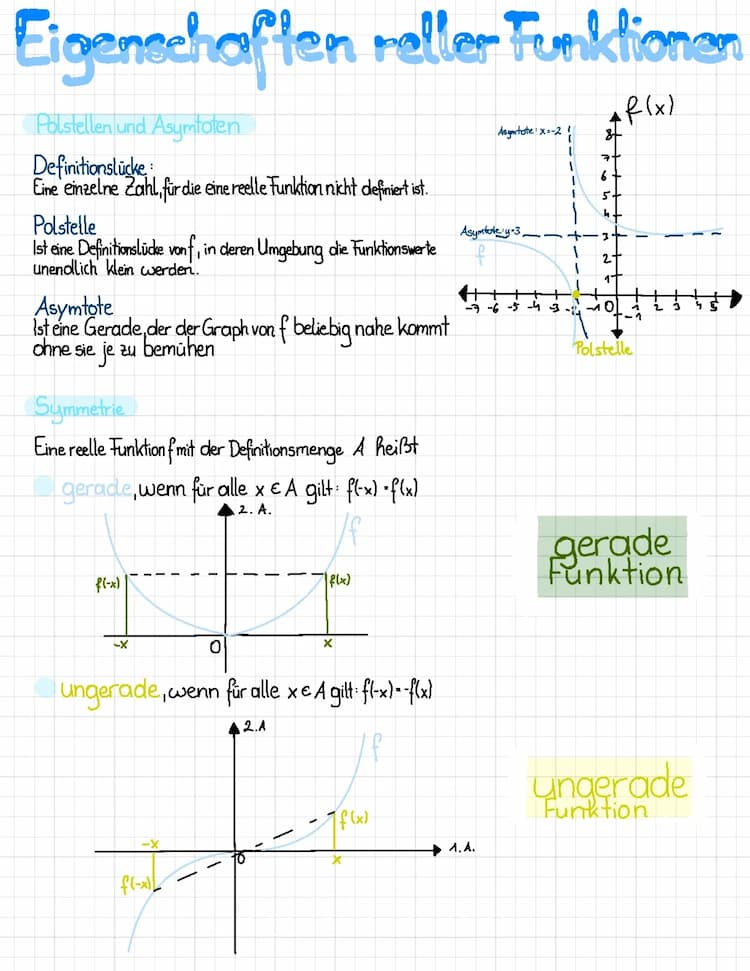 Eigenschaften reller Funktionen
Polstellen und Asymtoten
Definitionslücke:
Eine einzelne Zahl, für die eine reelle Funktion nicht definiert ist.
Polstelle
Ist eine Definitionslücke von f, in deren Umgebung die Funktionswerte
unendlich klein werden.
Asymtote
Ist eine Gerade, der der Graph von f beliebig nahe kommt
ohne sie je zu bemühen
f(x)
Asymtote: x=-2
8
7
6
5
4
3
2
1
Asymtote: y=3
f
-7 -6 -5 -4 -3 -1 0 1 2 3 4 5
-1
Polstelle
Symmetrie
Eine reelle Funktion f mit der Definitionsmenge A heißt
gerade, wenn für alle x ∈ A gilt: f(-x) = f(x)
2. A.
f
f(-x)
f(x)
-x
0
x
gerade
Funktion
ungerade, wenn für alle x ∈ A gilt: f(-x) = -f(x)
2.A
f
f(x)
-x
0
x
1.A.
f(-x)
ungerade
Funktion